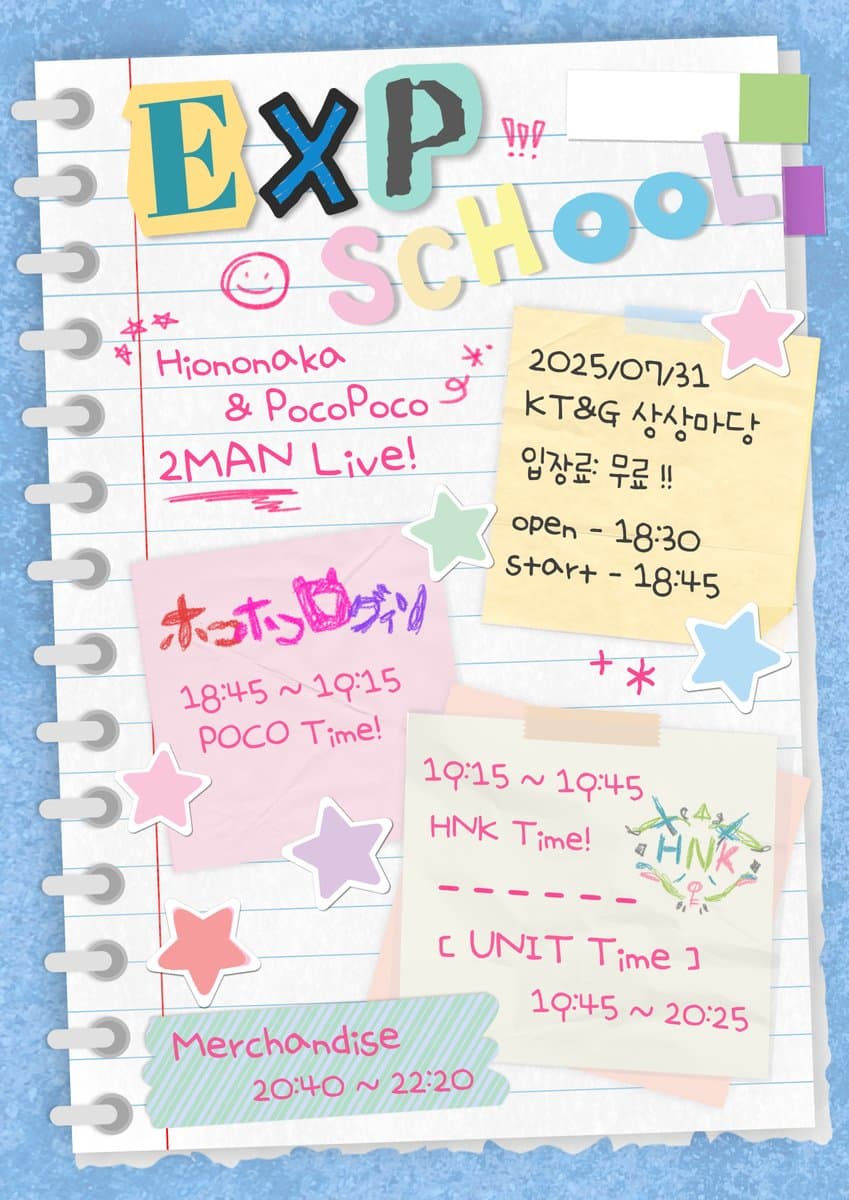 EXP !!!
SCHOOL
Hiononaka
& PocoPoco
2MAN Live!
2025/07/31
KT&G 상상마당
입장료: 무료 !!
open - 18:30
start - 18:45
ホコホコログイン
18:45 ~ 19:15
POCO Time!
19:15 ~ 19:45
HNK Time!
HNK
[ UNIT Time ]
19:45 ~ 20:25
Merchandise
20:40 ~ 22:20